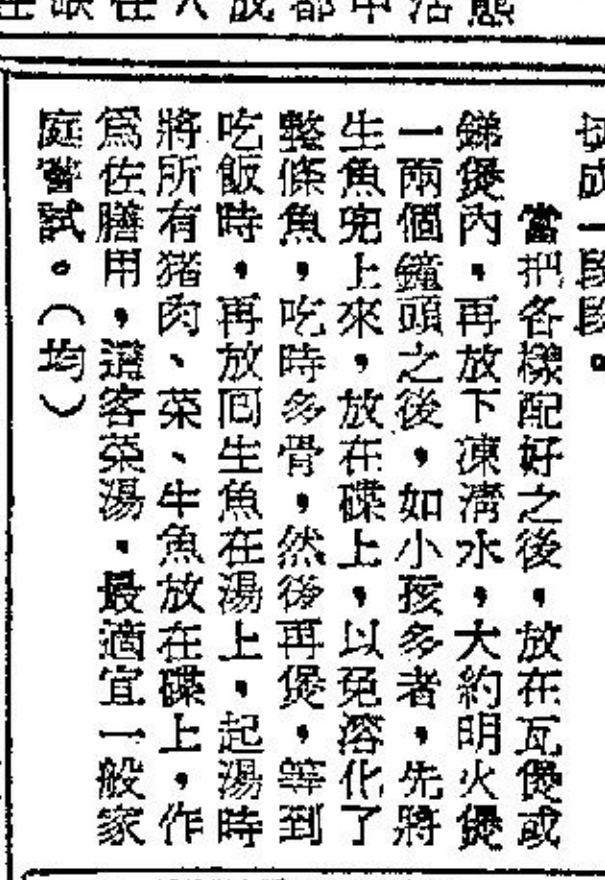 切成一段段。
當把各樣配好之後，放在瓦煲或
銻煲內，再放下凍清水，大約明火煲
一兩個鐘頭之後，如小孩多者，先將
生魚兜上來，放在碟上，以免溶化了
整條魚，吃時多骨，然後再煲，等到
吃飯時，再放囘生魚在湯上，起湯時
將所有猪肉、菜、牛魚放在碟上，作
爲佐膳用，這客菜湯，最適宜一般家
庭嘗試。（均）